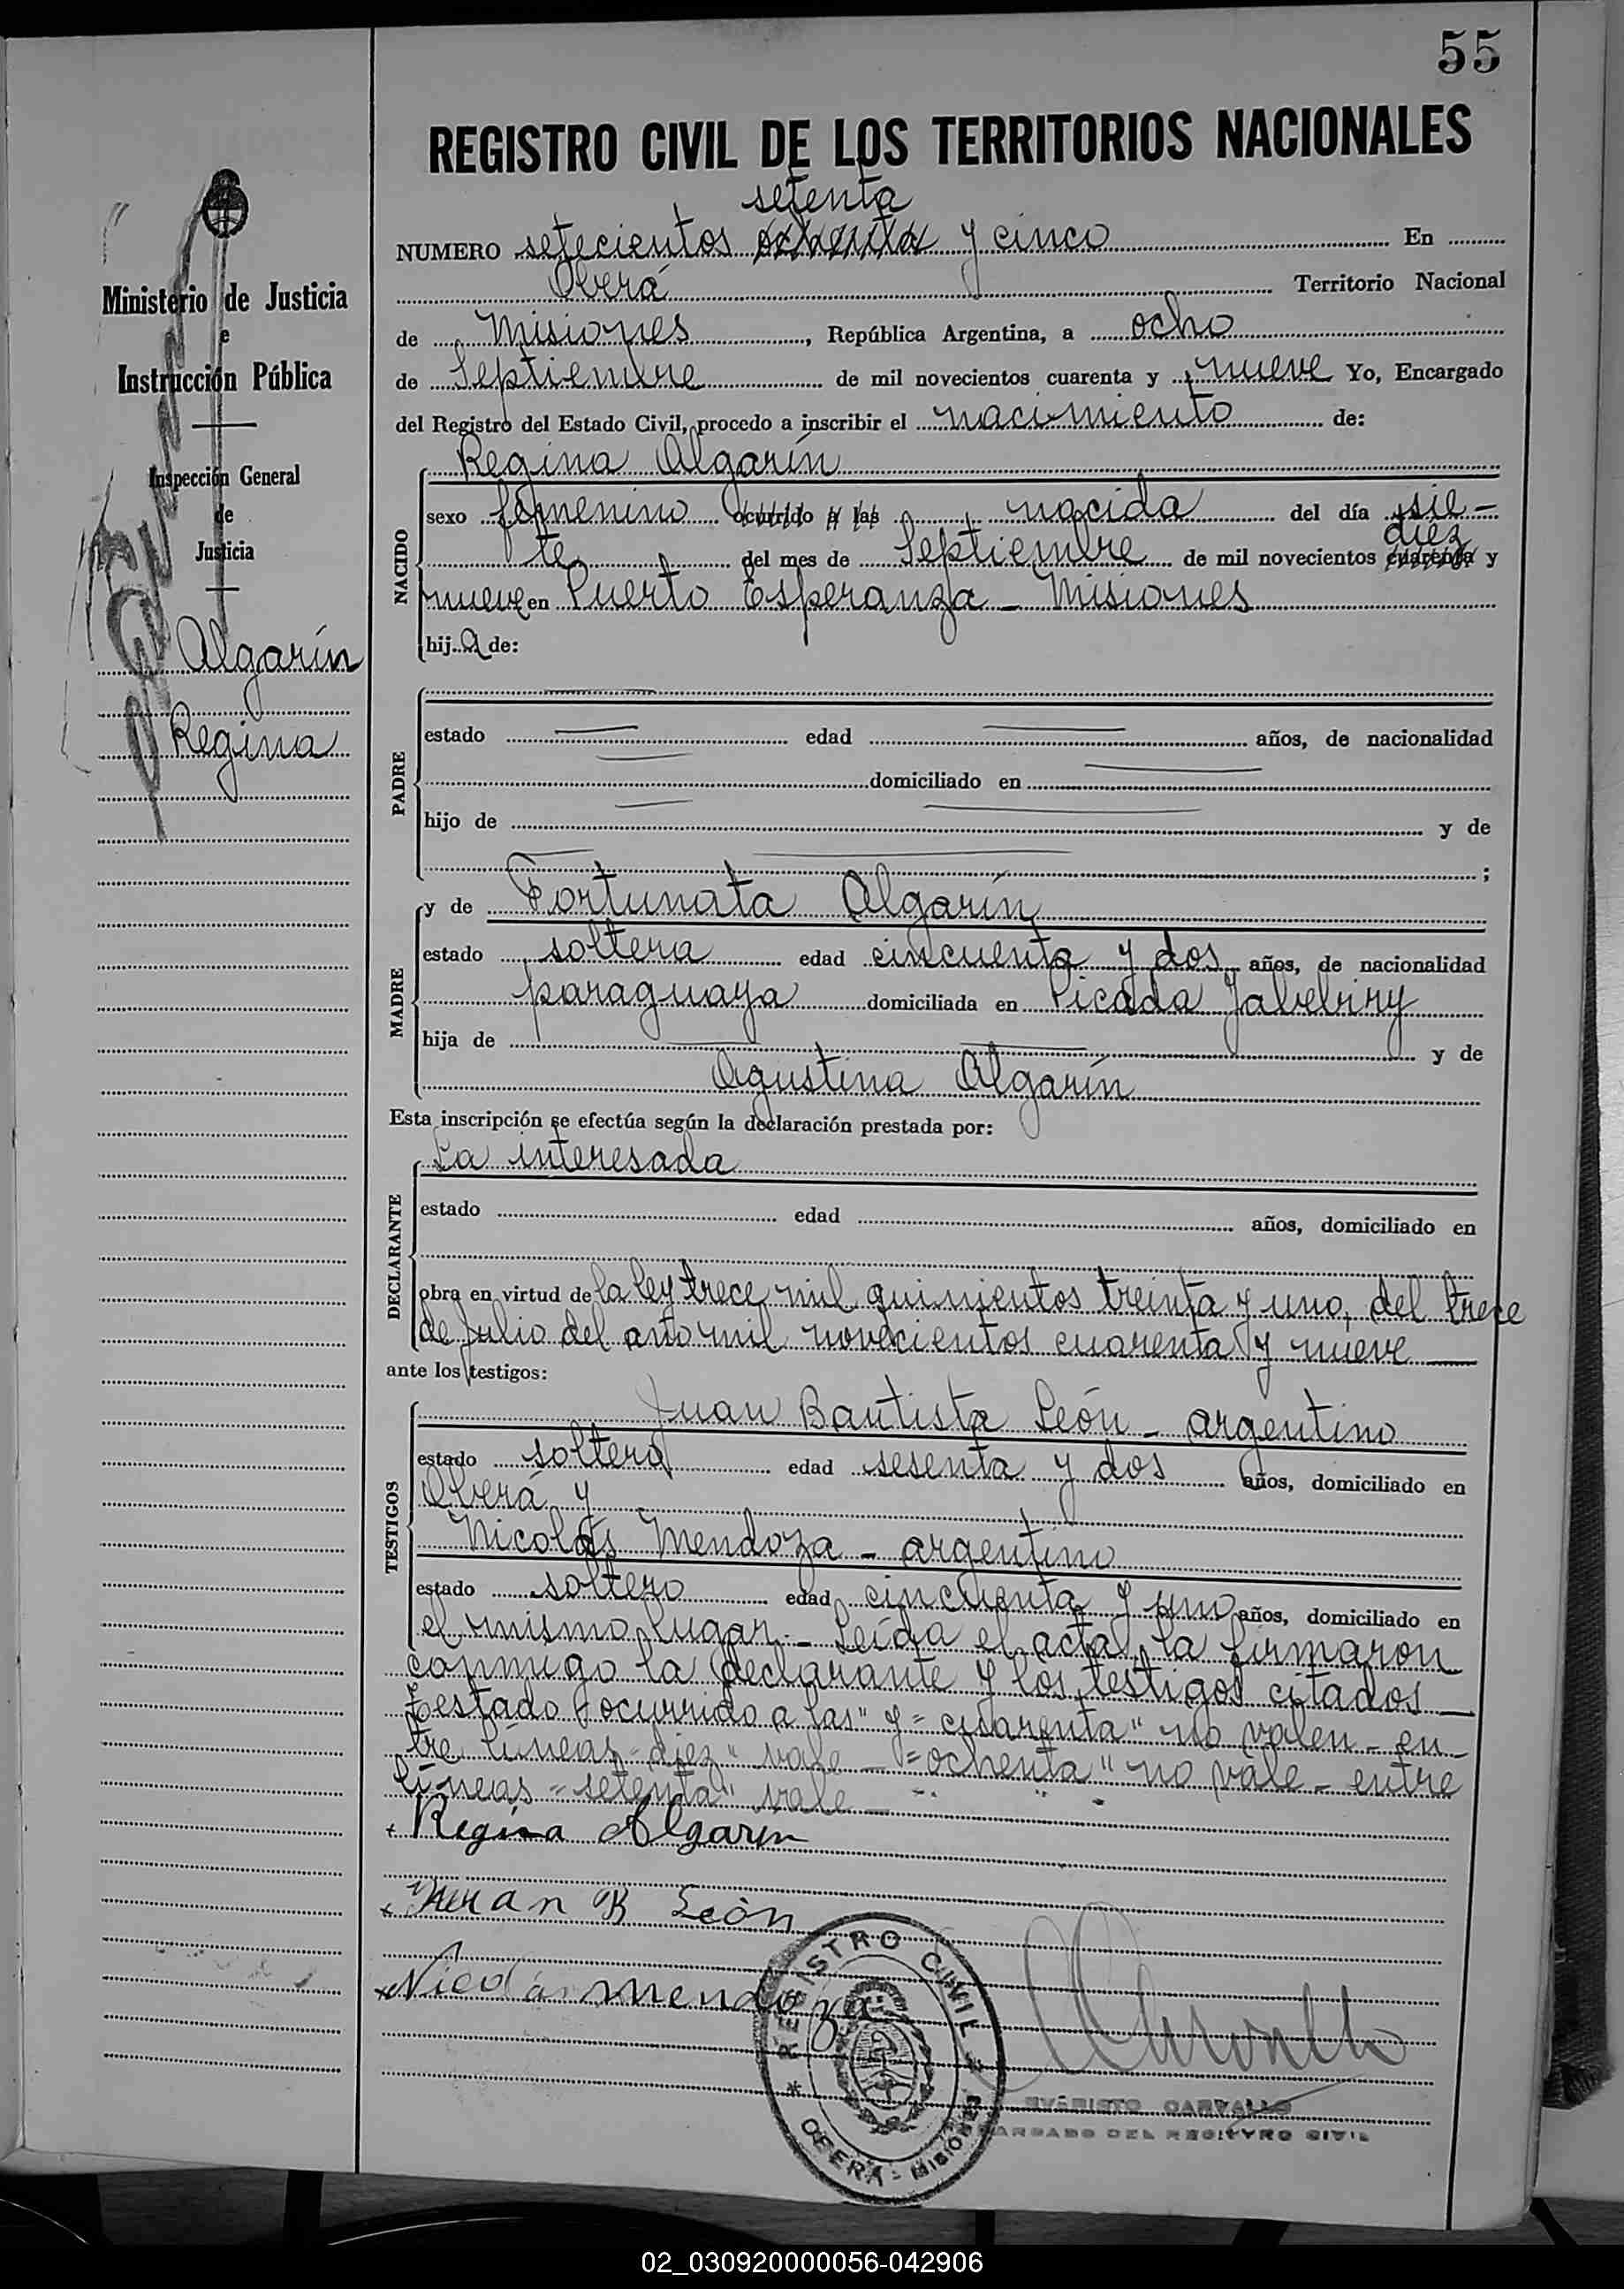 55
REGISTRO CIVIL DE LOS TERRITORIOS NACIONALES
setenta
NUMERO setecientos ochenta y cinco En
Oberá Territorio Nacional
de Misiones, República Argentina, a ocho
de Septiembre de mil novecientos cuarenta y nueve Yo, Encargado
del Registro del Estado Civil, procedo a inscribir el nacimiento de:
NACIDO
Regina Algarín
sexo femenino ocurrido a las nacida del día sie-
diéz
te del mes de Septiembre de mil novecientos cuarenta y
nueve en Puerto Esperanza - Misiones
hij a de:
PADRE
estado edad años, de nacionalidad
domiciliado en
hijo de y de
;
MADRE
y de Fortunata Algarín
estado soltera edad cincuenta y dos años, de nacionalidad
paraguaya domiciliada en Picada Yabebiry
hija de y de
Agustina Algarín
Esta inscripción se efectúa según la declaración prestada por:
DECLARANTE
La interesada
estado edad años, domiciliado en
obra en virtud de la ley trece mil quinientos treinta y uno, del trece
de Julio del año mil novecientos cuarenta y nueve
ante los testigos:
TESTIGOS
Juan Bautista León - argentino
estado soltero edad sesenta y dos años, domiciliado en
Oberá y
Nicolás Mendoza - argentino
estado soltero edad cincuenta y uno años, domiciliado en
el mismo lugar.- Leída el acta, la firmaron
conmigo la declarante y los testigos citados
Testado "ocurrido a las" y "cuarenta" no valen - en-
tre líneas "diez" vale - "ochenta" no vale - entre
líneas "setenta" vale -
Regina Algarin
Juan B León
Nicolás Mendoza
REGISTRO CIVIL
OBERÁ - MISIONES
EVARISTO CARVALLO
ENCARGADO DEL REGISTRO CIVIL
Ministerio de Justicia
e
Instrucción Pública
Inspección General
de
Justicia
Algarín
Regina
02_030920000056-042906